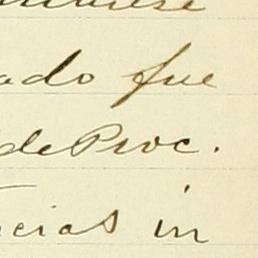 ado fue
de Proc.
cias in